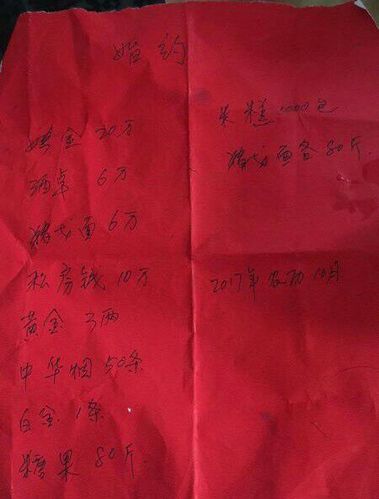 婚约
聘金20万
酒桌6万
猪七面6万
私房钱10万
黄金3两
中华烟50条
白金1条
糖果80斤.
炙糕1000包
猪七面各80斤.
2017年农历10月